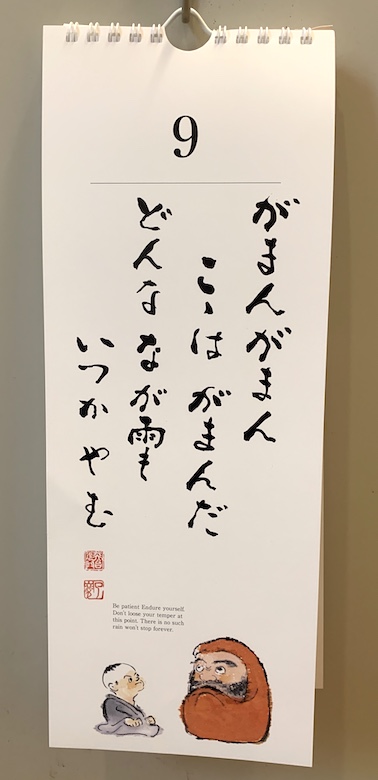 9
がまんがまん
こゝはがまんだ
どんな なが雨も
いつか やむ
Be patient Endure yourself.
Don't loose your temper at
this point. There is no such
rain won't stop forever.